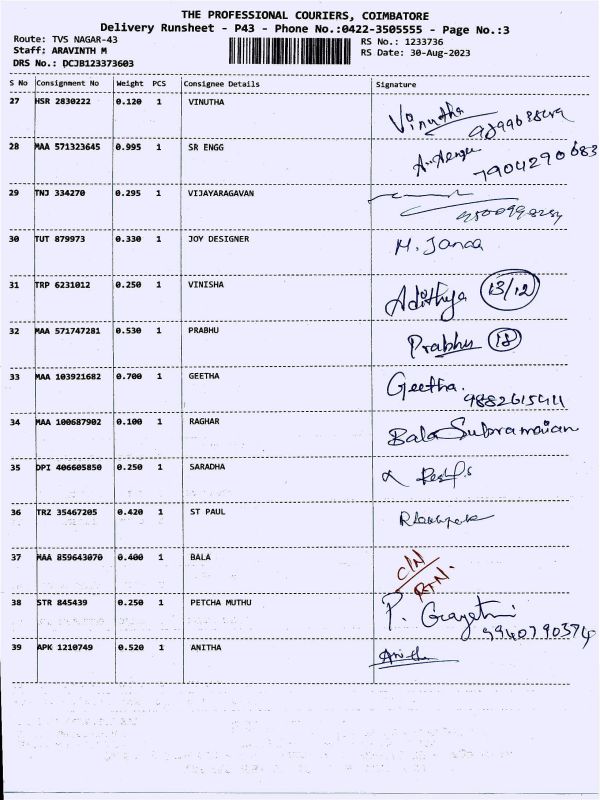 THE PROFESSIONAL COURIERS, COIMBATORE
Delivery Runsheet - P43 - Phone No.:0422-3505555 - Page No.:3
Route: TVS NAGAR-43
RS No.: 1233736
Staff: ARAVINTH M
RS Date: 30-Aug-2023
DRS No.: DCJB123373603
S No Consignment No Weight PCS Consignee Details Signature
27 HSR 2830222 0.120 1 VINUTHA Vinutha
28 MAA 571323645 0.995 1 SR ENGG
7904290683
29 TNJ 334270 0.295 1 VIJAYARAGAVAN
30 TUT 879973 0.330 1 JOY DESIGNER M. Janaa
31 TRP 6231012 0.250 1 VINISHA Adithya 13/12
32 MAA 571747281 0.530 1 PRABHU Prabhu 18
33 MAA 103921682 0.700 1 GEETHA Geetha.
34 MAA 100687902 0.100 1 RAGHAR Bala Subramaian
35 DPI 406605850 0.250 1 SARADHA
36 TRZ 35467205 0.420 1 ST PAUL
37 MAA 859643070 0.400 1 BALA C/N
RTN.
38 STR 845439 0.250 1 PETCHA MUTHU P. Gayatri
9940790374
39 APK 1210749 0.520 1 ANITHA Anitha